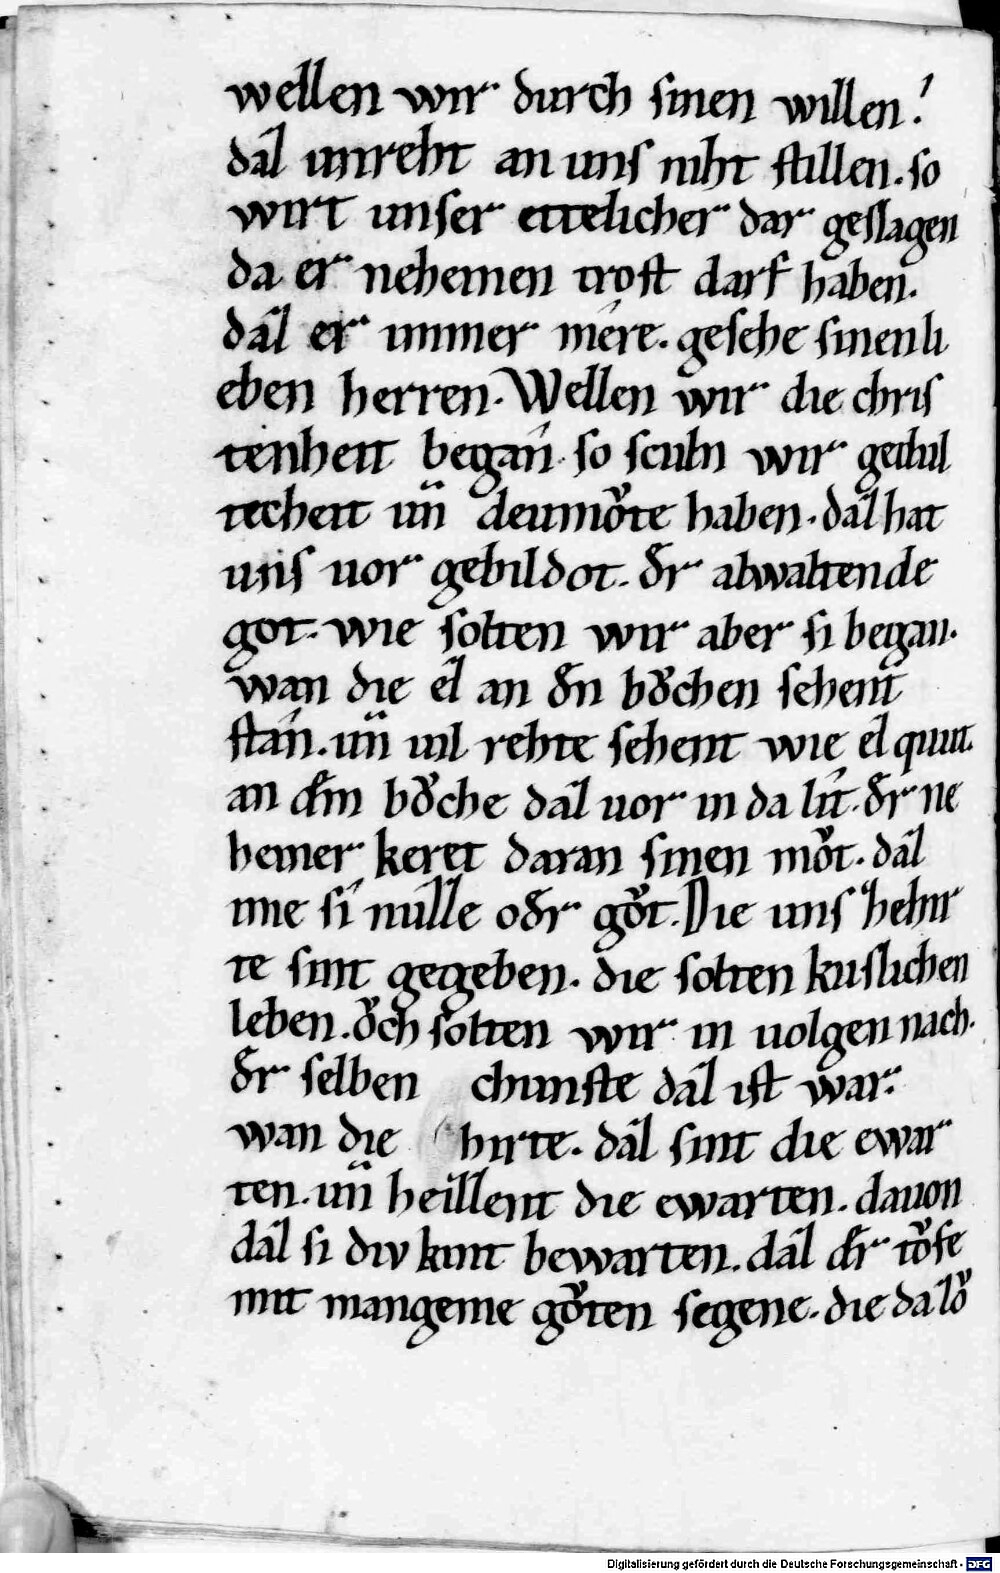 wellen wir durch sinen willen.
däl unreht an uns niht stillen. so
wirt unser ettelicher dar geslagen
da er nehemen trost darf haben.
däl er immer mére. gesehe sinen li
eben herren. Wellen wir die chris
tenheit began so sculn wir gedul
techeit uñ deumůte haben. däl hat
uns uor gebildot. der alwaltende
got. wie solten wir aber si began.
wan die ël an den bůchen sehent
stán. uñ uil rehte sehent wie ël quut.
an dem bůche däl uor in da lít. der ne
hemer keret daran sinen můt. däl
ime sí nülle oder gůt. Die uns ze hehir
te sint gegeben. die solten kuslichen
leben. ǒch solten wir in uolgen nach.
der selben chunste däl ist war.
wan die hirte. däl sint die ewar
ten. uñ heillent die ewarten. dauon
däl si div kint bewarten. däl der tǒfe
mit mangeme gůten segene. die da lǒ
Digitalisierung gefördert durch die Deutsche Forschungsgemeinschaft - DFG